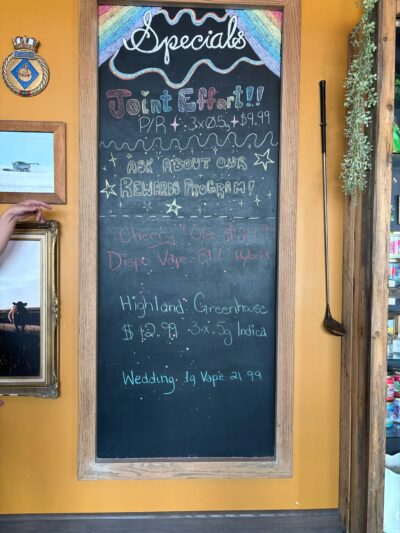 Specials
Joint Effort!!
P/R 3x0.5g $9.99
Ask About Our
Rewards Program!
Cherry
Dispo Vape Hybrid
Highland Greenhouse
$12.99 3x.5g Indica
Wedding 1g Vape 21.99